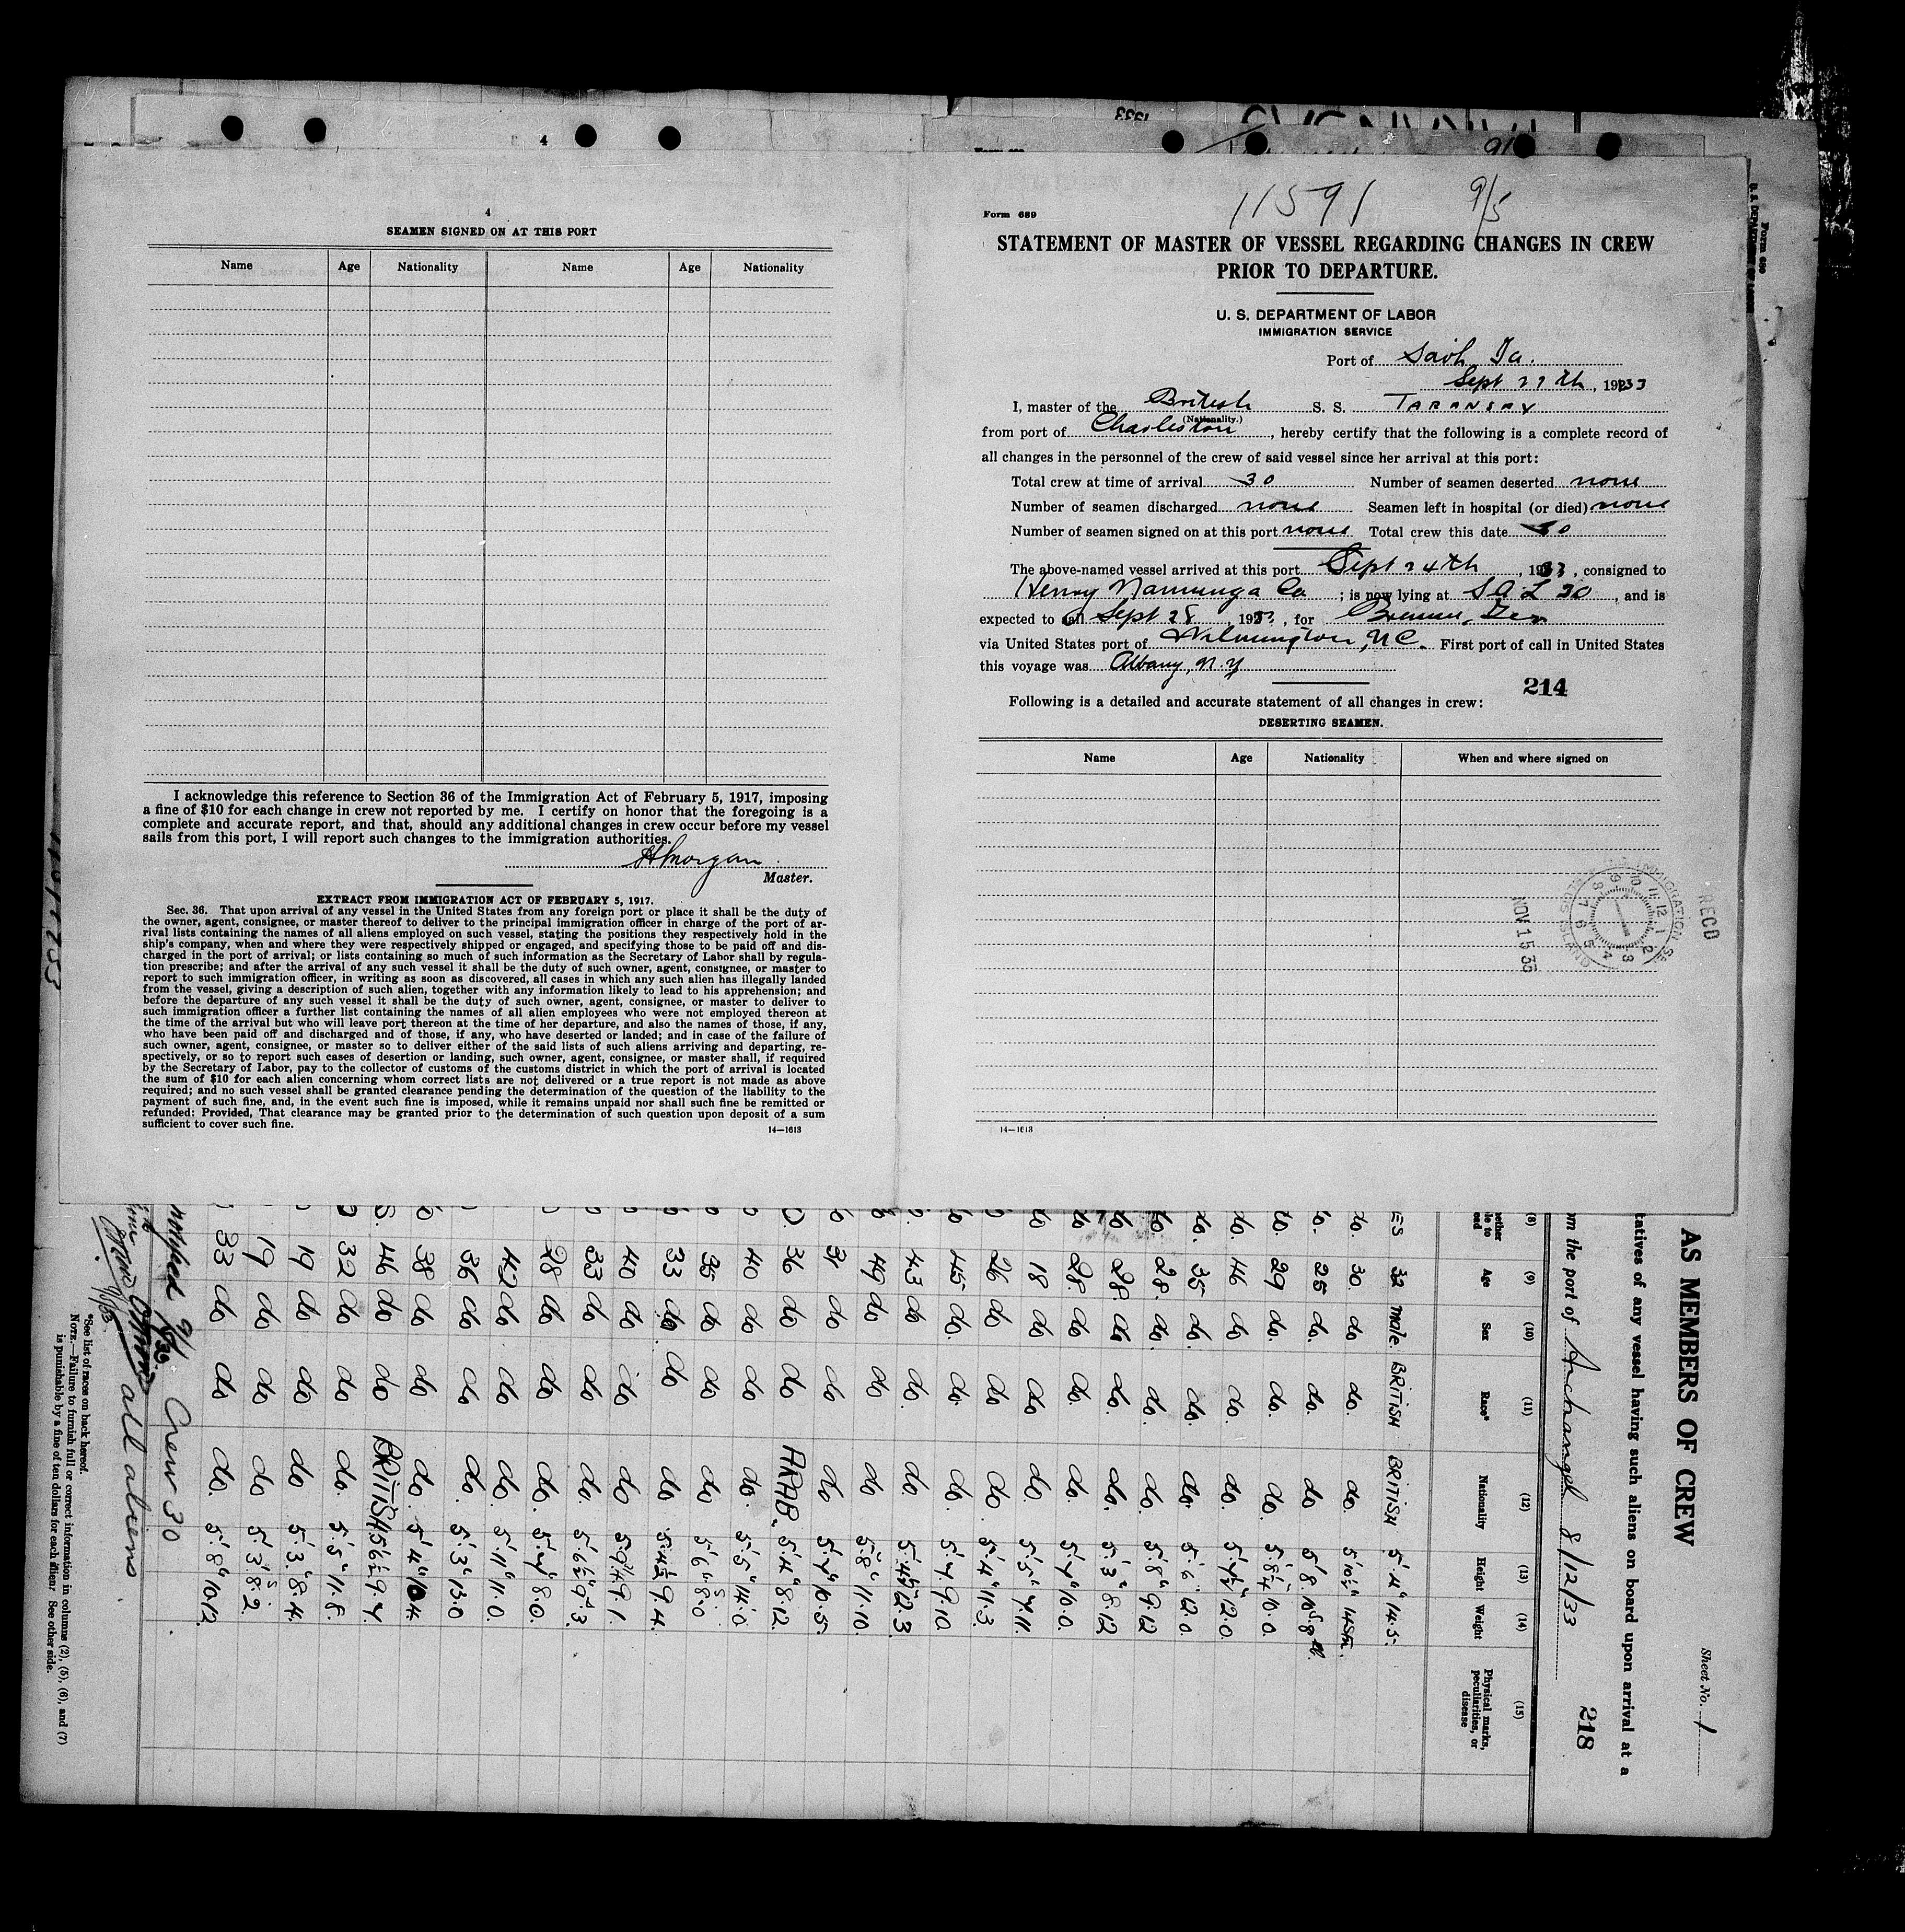 4
4
SEAMEN SIGNED ON AT THIS PORT
Name Age Nationality Name Age Nationality
I acknowledge this reference to Section 36 of the Immigration Act of February 5, 1917, imposing
a fine of $10 for each change in crew not reported by me. I certify on honor that the foregoing is a
complete and accurate report, and that, should any additional changes in crew occur before my vessel
sails from this port, I will report such changes to the immigration authorities.
HMorgan
Master.
EXTRACT FROM IMMIGRATION ACT OF FEBRUARY 5, 1917.
Sec. 36. That upon arrival of any vessel in the United States from any foreign port or place it shall be the duty of
the owner, agent, consignee, or master thereof to deliver to the principal immigration officer in charge of the port of ar-
rival lists containing the names of all aliens employed on such vessel, stating the positions they respectively hold in the
ship's company, when and where they were respectively shipped or engaged, and specifying those to be paid off and dis-
charged in the port of arrival; or lists containing so much of such information as the Secretary of Labor shall by regula-
tion prescribe; and after the arrival of any such vessel it shall be the duty of such owner, agent, consignee, or master to
report to such immigration officer, in writing as soon as discovered, all cases in which any such alien has illegally landed
from the vessel, giving a description of such alien, together with any information likely to lead to his apprehension; and
before the departure of any such vessel it shall be the duty of such owner, agent, consignee, or master to deliver to
such immigration officer a further list containing the names of all alien employees who were not employed thereon at
the time of the arrival but who will leave port thereon at the time of her departure, and also the names of those, if any,
who have been paid off and discharged and of those, if any, who have deserted or landed; and in case of the failure of
such owner, agent, consignee, or master so to deliver either of the said lists of such aliens arriving and departing, re-
spectively, or so to report such cases of desertion or landing, such owner, agent, consignee, or master shall, if required
by the Secretary of Labor, pay to the collector of customs of the customs district in which the port of arrival is located
the sum of $10 for each alien concerning whom correct lists are not delivered or a true report is not made as above
required; and no such vessel shall be granted clearance pending the determination of the question of the liability to the
payment of such fine, and, in the event such fine is imposed, while it remains unpaid nor shall such fine be remitted or
refunded: Provided, That clearance may be granted prior to the determination of such question upon deposit of a sum
sufficient to cover such fine.
14—1613
11591 9/5
Form 689
STATEMENT OF MASTER OF VESSEL REGARDING CHANGES IN CREW
PRIOR TO DEPARTURE.
U. S. DEPARTMENT OF LABOR
IMMIGRATION SERVICE
Port of Savh, Ga.
Sept 27th, 1933
I, master of the British S. S. TARANSAY
(Nationality.)
from port of Charleston, hereby certify that the following is a complete record of
all changes in the personnel of the crew of said vessel since her arrival at this port:
Total crew at time of arrival 30 Number of seamen deserted none
Number of seamen discharged none Seamen left in hospital (or died) none
Number of seamen signed on at this port none Total crew this date 30
The above-named vessel arrived at this port Sept 24th, 1933, consigned to
Henry Nanninga Co; is now lying at SAL 20, and is
expected to sail Sept 28, 1933, for Bremen, Ger
via United States port of Wilmington, NC. First port of call in United States
this voyage was Albany, N.Y
214
Following is a detailed and accurate statement of all changes in crew:
DESERTING SEAMEN.
Name Age Nationality When and where signed on
RECD
NOV 15 33
14—1613
AS MEMBERS OF CREW
Sheet No. 1
tatives of any vessel having such aliens on board upon arrival at a
om the port of Archangel 8/12/33
218
(8) (9) (10) (11) (12) (13) (14) (15)
Age Sex Race* Nationality Height Weight Physical marks, peculiarities, or disease
ES 32 male. BRITISH BRITISH 5'.4" 14.5.
do. 30. do. do. do. 5'10½" 14 Stn.
25 do. do. do
29 do. do. do. 5.8¼ 10.0.
do. 46 do do. do. 5'.4½" 12.0.
do. 35 do. do. do. 5'.6" 12.0.
28. do. do. do. 5'.8" 9.12
28. do do. do. 5'.3" 8.12
28. do do. do. 5'.7" 10.0.
18 do do. do. 5'.5" 7.11.
26 do do do. 5'.4" 11.3.
45 do. do. do 5'.7" 9.10
43 do do. do
49 do do do 5'.8" 11.10.
31 do do. do 5'.7" 10.5.
36 do do ARAB. 5'.4" 8.12.
40 do do do. 5'.5" 14.0
35 do do do 5'6" 8.0
33 do do do 5.4½ 9.4.
40 do do do
33 do do do. 5'.6½" 9.3.
28 do do do. 5'.7" 8.0.
42 do do do. 5'.11" 11.0.
36 do do do. 5'.3" 13.0
38 do do do. 5'4" 10.4.
46 do do BRITISH 5'6½ 9.7.
32 do do do. 5'.5" 11.8.
19 do do do 5'.3" 8.4.
19 do do do 5'.3" 8.2.
33 do do do. 5'.8" 10.12.
Crew 30
all aliens
*See list of races on back hereof.
NOTE.—Failure to furnish full or correct information in columns (2), (5), (6), and (7)
is punishable by a fine of ten dollars for each alien. See other side.
Form 689